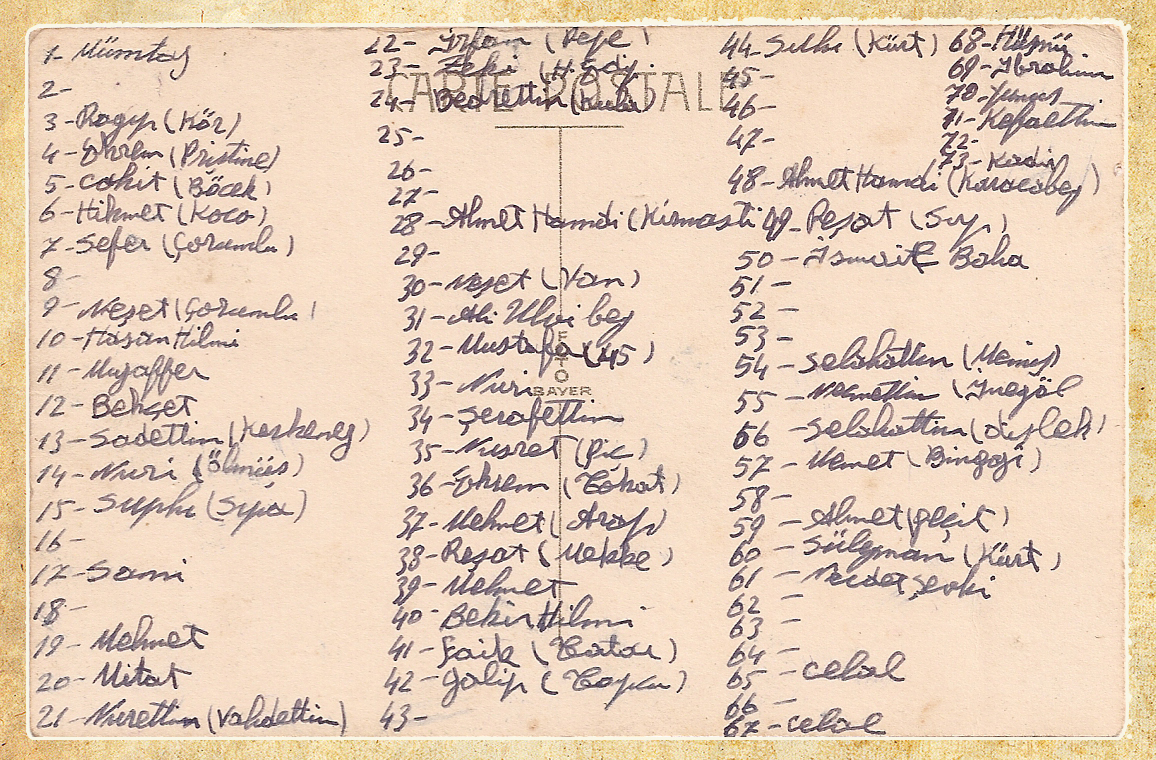 1- Mümtaz
2-
3- Ragıp (Kör)
4- Ekrem (Pristine)
5- Cahit (Böcek)
6- Hikmet (Koco)
7- Sefer (Çorumlu)
8-
9- Neşet (Çorumlu)
10- Hasan Hilmi
11- Muzaffer
12- Behçet
13- Sadettin (Keskeneg)
14- Nuri (Ölmüş)
15- Suphi (Sıpa)
16-
17- Sami
18-
19- Mehmet
20- Mitat
21- Nurettin (Vahdettin)
22- İrfan (Pepe)
23- Zeki
24- Bedrettin
25-
26-
27-
28- Ahmet Hamdi (Kirmasti)
29-
30- Neşet (Van)
31- Ali Ulvi bey
32- Mustafa (45)
33- Nuri
34- Şerafettin
35- Nusret (Piç)
36- Ekrem (Tokat)
37- Mehmet (Arap)
38- Reşat (Mekke)
39- Mehmet
40- Bekir Hilmi
41- Faik (Tatar)
42- Galip
43-
44- Suphi (Kürt)
45-
46-
47-
48- Ahmet Hamdi (Karacabey)
49- Reşat
50- İsmail Baha
51-
52-
53-
54- Selahattin
55- Necmettin (İnegöl
56- Selahattin
57- Mehmet
58-
59- Ahmet
60- Süleyman (Kürt)
61- Necdet Şevki
62-
63-
64-
65- Celal
66-
67- Celal
68- Hüsnü
69- İbrahim
70- Yunus
71-
72-
73- Kadir
CARTE POSTALE
FOTO
BAYER